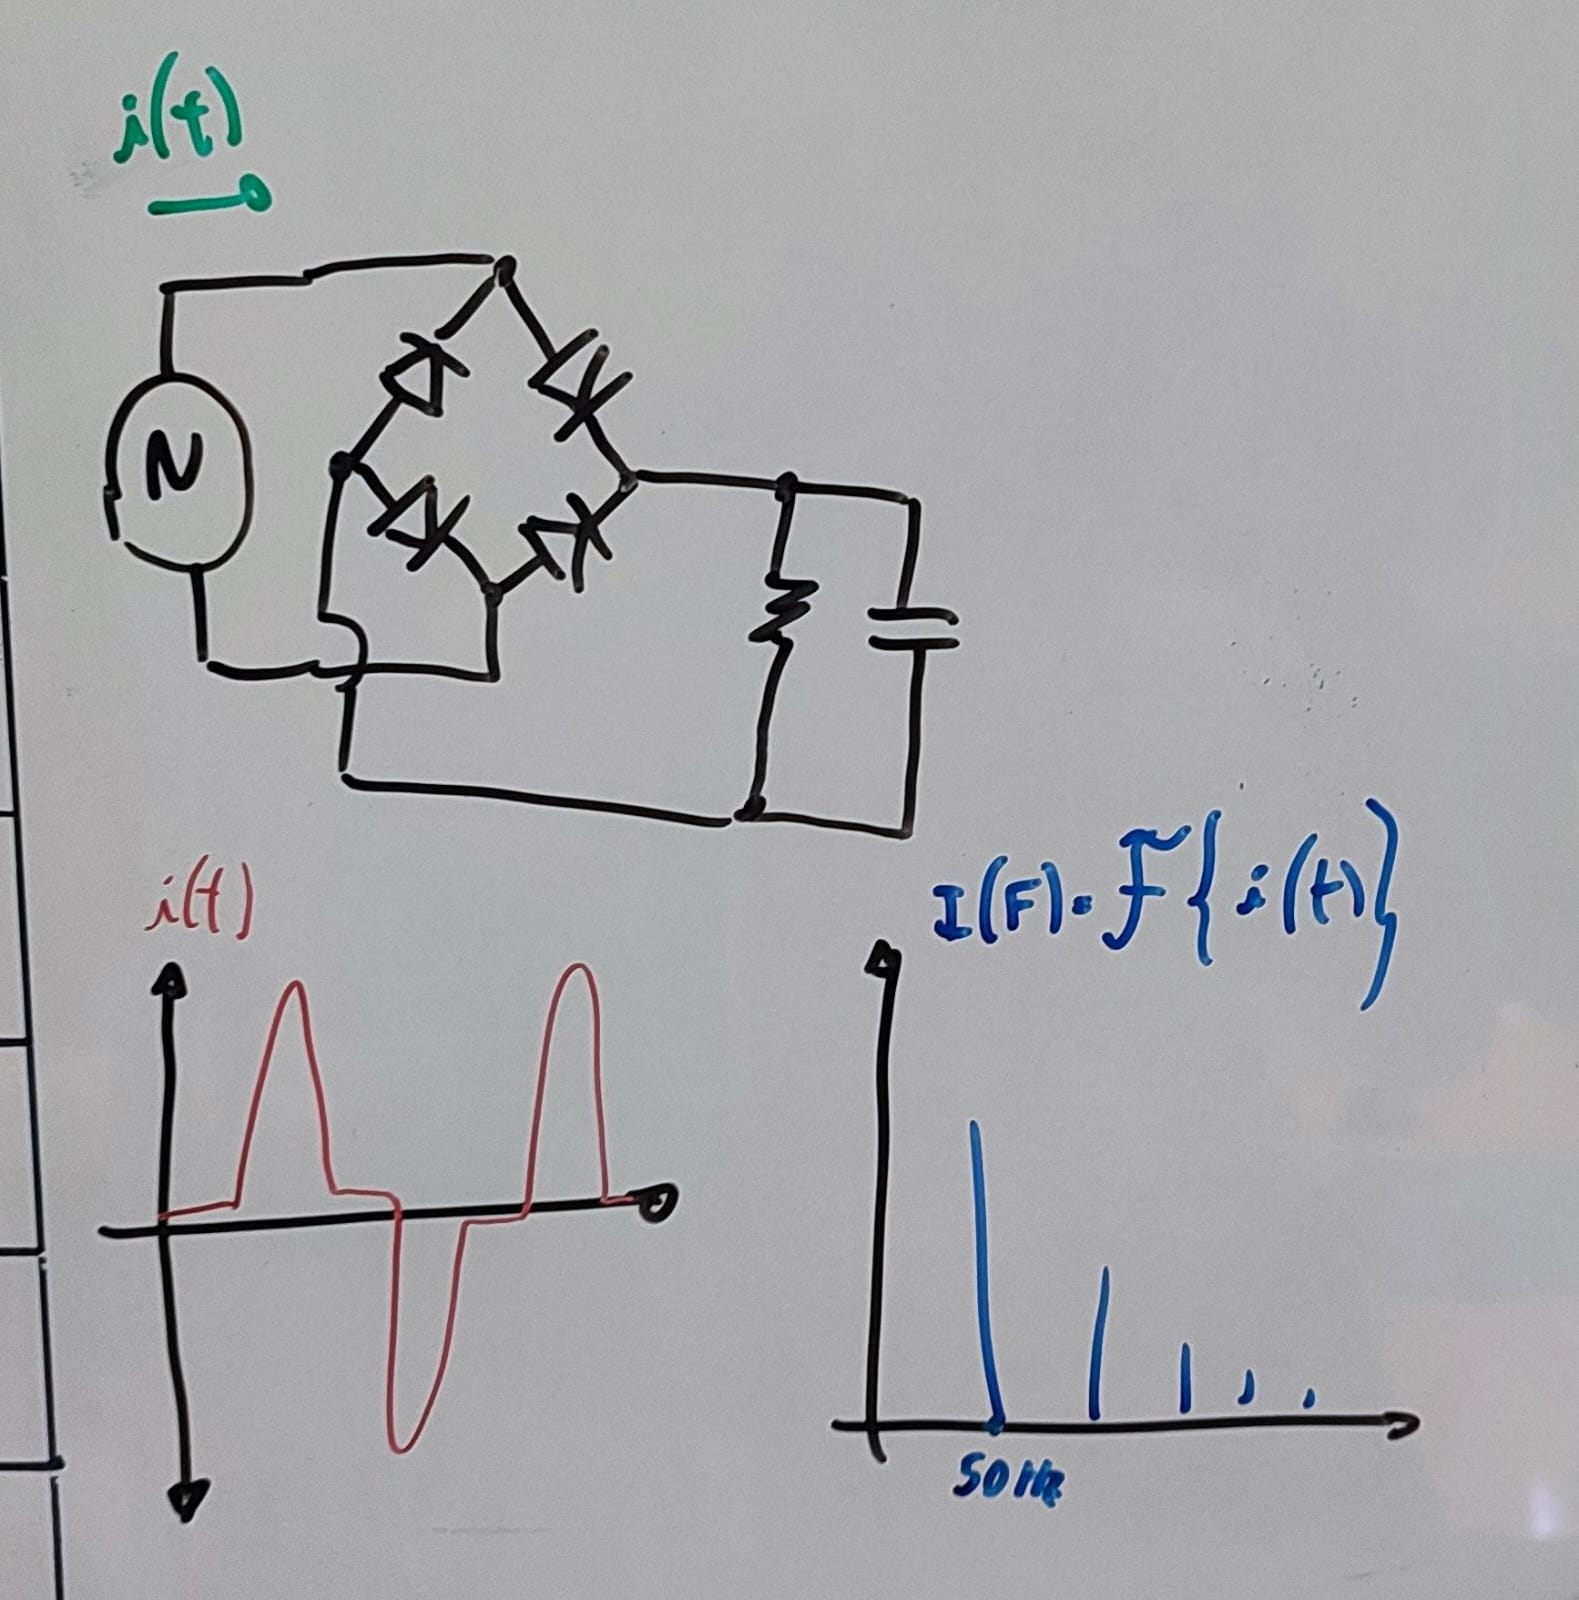 i(t)
N
i(t)
I(F) = F{i(t)}
50 Hz